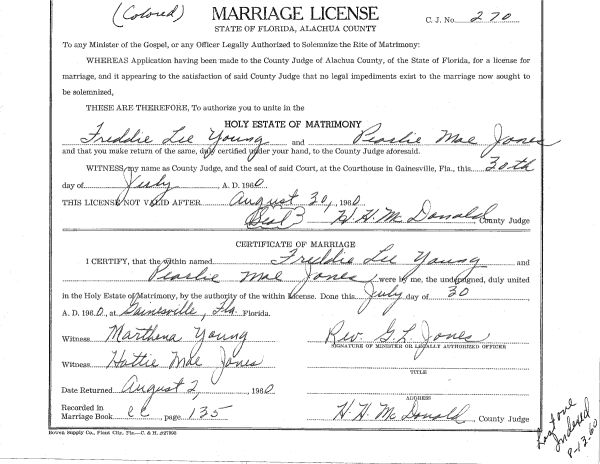 (Colored) MARRIAGE LICENSE C. J. No. 270
STATE OF FLORIDA, ALACHUA COUNTY
To any Minister of the Gospel, or any Officer Legally Authorized to Solemnize the Rite of Matrimony:
WHEREAS Application having been made to the County Judge of Alachua County, of the State of Florida, for a license for
marriage, and it appearing to the satisfaction of said County Judge that no legal impediments exist to the marriage now sought to
be solemnized,
THESE ARE THEREFORE, To authorize you to unite in the
HOLY ESTATE OF MATRIMONY
Freddie Lee Young and Pearlie Mae Jones
and that you make return of the same, duly certified under your hand, to the County Judge aforesaid.
WITNESS my name as County Judge, and the seal of said Court, at the Courthouse in Gainesville, Fla., this 30th
day of July A. D. 1960
THIS LICENSE NOT VALID AFTER August 30, 1960
(Seal) H. H. McDonald County Judge
CERTIFICATE OF MARRIAGE
I CERTIFY, that the within named Freddie Lee Young and
Pearlie Mae Jones were by me, the undersigned, duly united
in the Holy Estate of Matrimony, by the authority of the within License. Done this July day of 30
A. D. 1960, at Gainesville, Fla. Florida.
Witness Marthena Young Rev. G. L. Jones
SIGNATURE OF MINISTER OR LEGALLY AUTHORIZED OFFICER
Witness Hattie Mae Jones
TITLE
Date Returned August 2, 1960
ADDRESS
Recorded in
Marriage Book EE page 135 H. H. McDonald County Judge
Bowen Supply Co., Plant City, Fla.—C. & H. #27595
Last one
Indexed
9-13-60